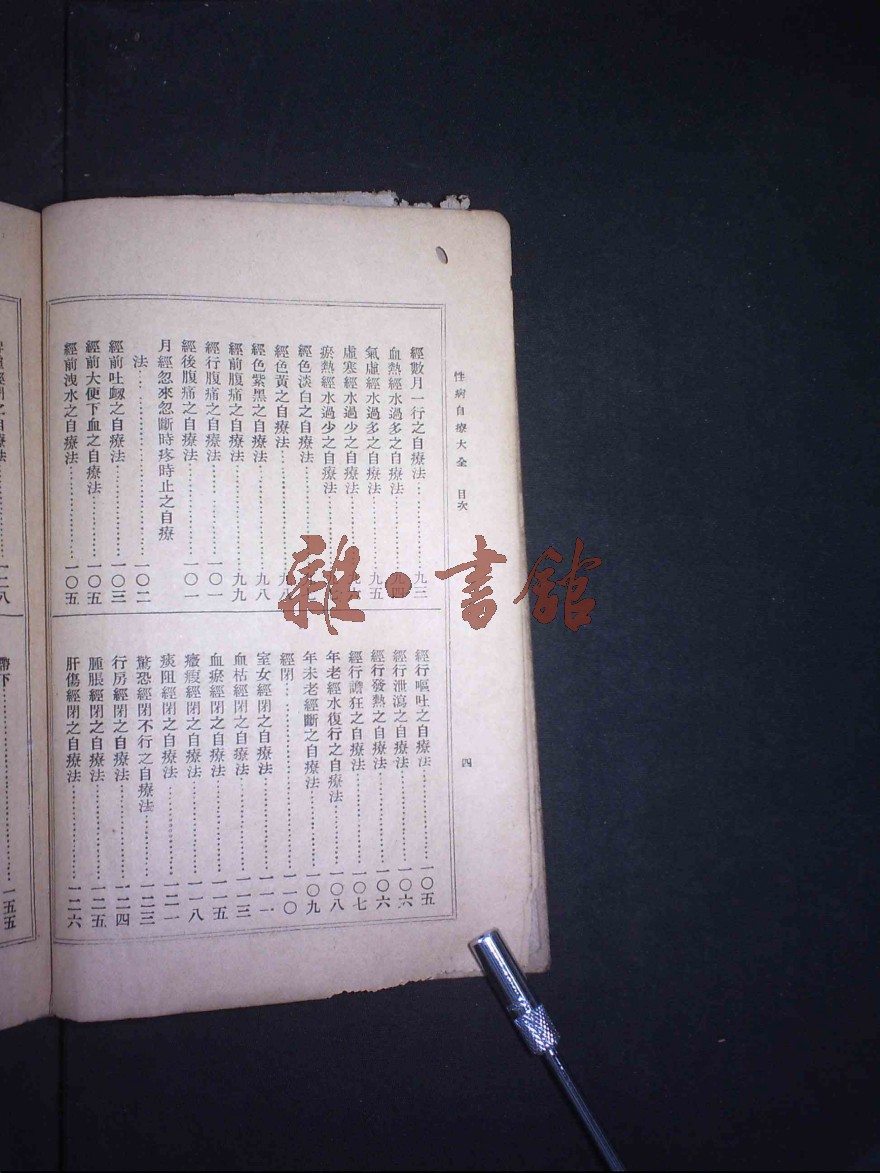 性病自療大全 目次
四
經數月一行之自療法…………九三
血熱經水過多之自療法…………九四
氣虛經水過多之自療法…………九五
虛寒經水過少之自療法…………
瘀熱經水過少之自療法…………
經色淡白之自療法…………
經色黃之自療法…………九八
經色紫黑之自療法…………九八
經前腹痛之自療法…………九九
經行腹痛之自療法…………一〇一
經後腹痛之自療法…………一〇一
月經忽來忽斷時疼時止之自療
法…………一〇二
經前吐衂之自療法…………一〇三
經前大便下血之自療法…………一〇五
經前洩水之自療法…………一〇五
經行嘔吐之自療法…………一〇五
經行泄瀉之自療法…………一〇六
經行發熱之自療法…………一〇六
經行譫狂之自療法…………一〇七
年老經水復行之自療法…………一〇八
年未老經斷之自療法…………一〇九
經閉…………一一〇
室女經閉之自療法…………一一一
血枯經閉之自療法…………一一三
血瘀經閉之自療法…………一一五
癥瘕經閉之自療法…………一一八
痰阻經閉之自療法…………一二一
驚恐經閉不行之自療法…………一二三
行房經閉之自療法…………一二四
腫脹經閉之自療法…………一二五
肝傷經閉之自療法…………一二六
經閉之自療法…………一二八
帶下…………一五五
雜·書館